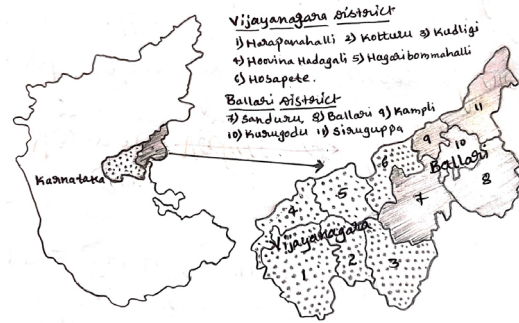 Vijayanagara District
1) Harapanahalli 2) Kotturu 3) Kudligi
4) Hoovina Hadagali 5) Hagaribommahalli
6) Hosapete.
Ballari District
7) Sanduru 8) Ballari 9) Kampli
10) Kurugodu 11) Siruguppa
Karnataka
11
9
10
Ballari
6
8
5
7
4
Vijayanagara
1
2
3